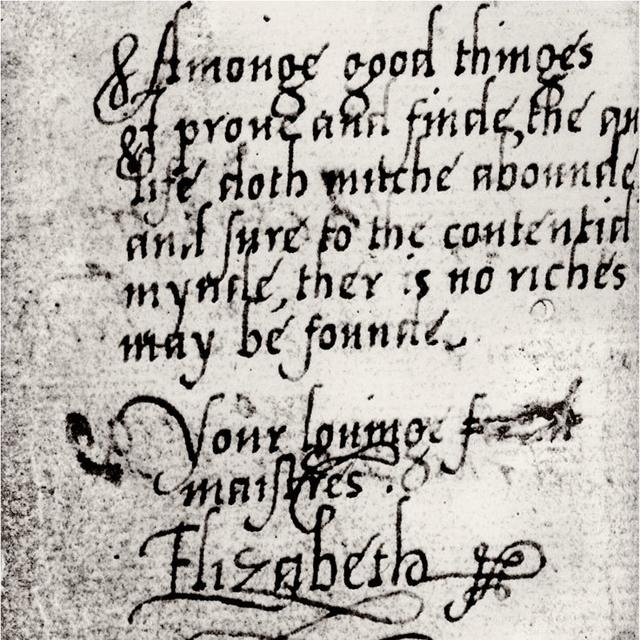 Amonge good thinges
I proue and finde, the qu
life doth mutche abounde
and sure to the contentid
mynde, ther is no riches
may be founde.
Your louinge
maistres .
Elizabeth